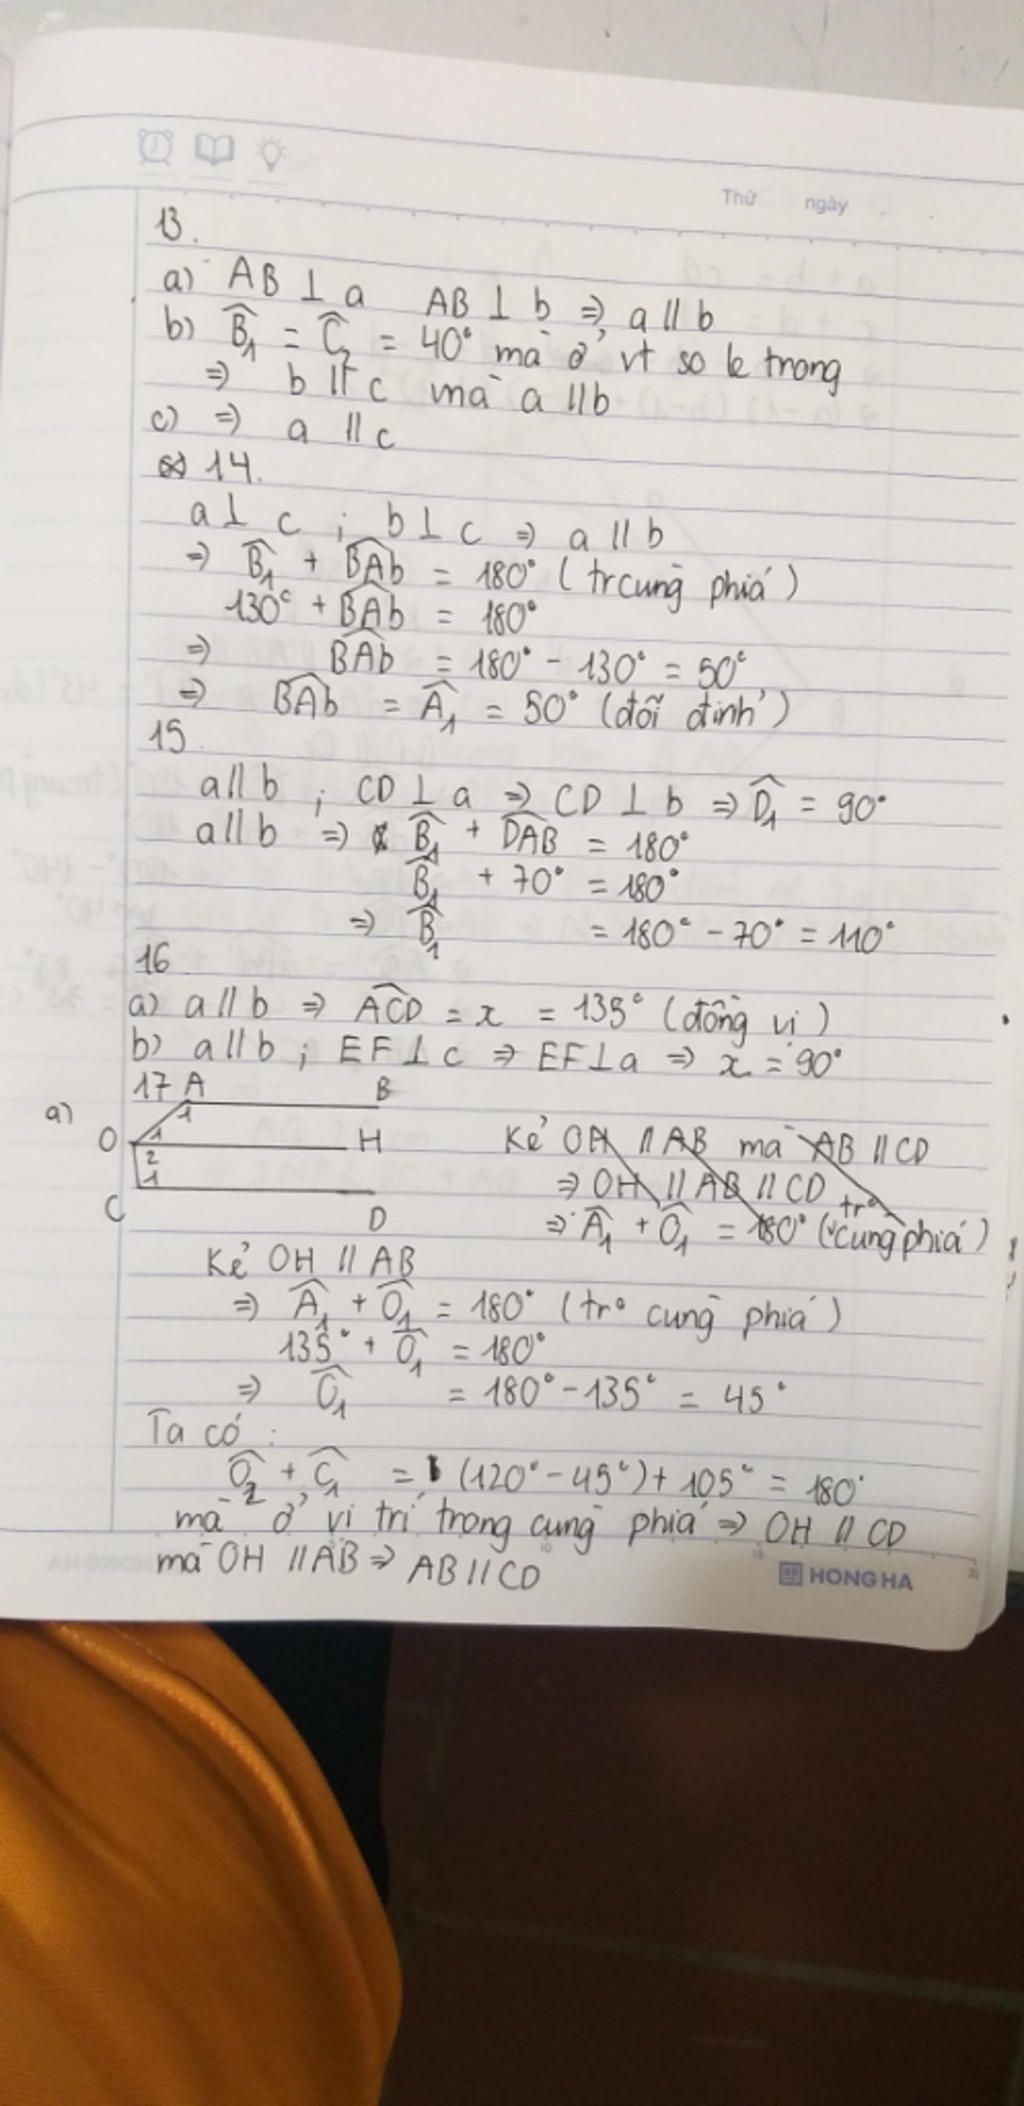 Thứ ngày
13.
a) AB ⊥ a AB ⊥ b ⇒ a // b
b) B̂₁ = Ĉ₂ = 40° mà ở vt so le trong
⇒ b // c mà a // b
c) ⇒ a // c
14.
a ⊥ c ; b ⊥ c ⇒ a // b
⇒ B̂₁ + BAb = 180° (trcùng phía)
130° + BAb = 180°
⇒ BAb = 180° - 130° = 50°
⇒ BAb = Â₁ = 50° (đối đỉnh)
15.
a // b ; CD ⊥ a ⇒ CD ⊥ b ⇒ D̂₁ = 90°
a // b ⇒ B̂₁ + DAB = 180°
B̂₁ + 70° = 180°
⇒ B̂₁ = 180° - 70° = 110°
16
a) a // b ⇒ ACD = x = 135° (đồng vị)
b) a // b ; EF ⊥ c ⇒ EF ⊥ a ⇒ x = 90°
17
a)
A B
1
O 1 H
2
1
C D
Kẻ OH // AB mà AB // CD
⇒ OH // AB // CD
⇒ Â₁ + Ô₁ = 180° (tr° cùng phía)
Kẻ OH // AB
⇒ Â₁ + Ô₁ = 180° (tr° cùng phía)
135° + Ô₁ = 180°
⇒ Ô₁ = 180° - 135° = 45°
Ta có :
Ô₂ + Ĉ₁ = (120° - 45°) + 105° = 180°
mà ở vị trí trong cùng phía ⇒ OH // CD
mà OH // AB ⇒ AB // CD
HONG HA